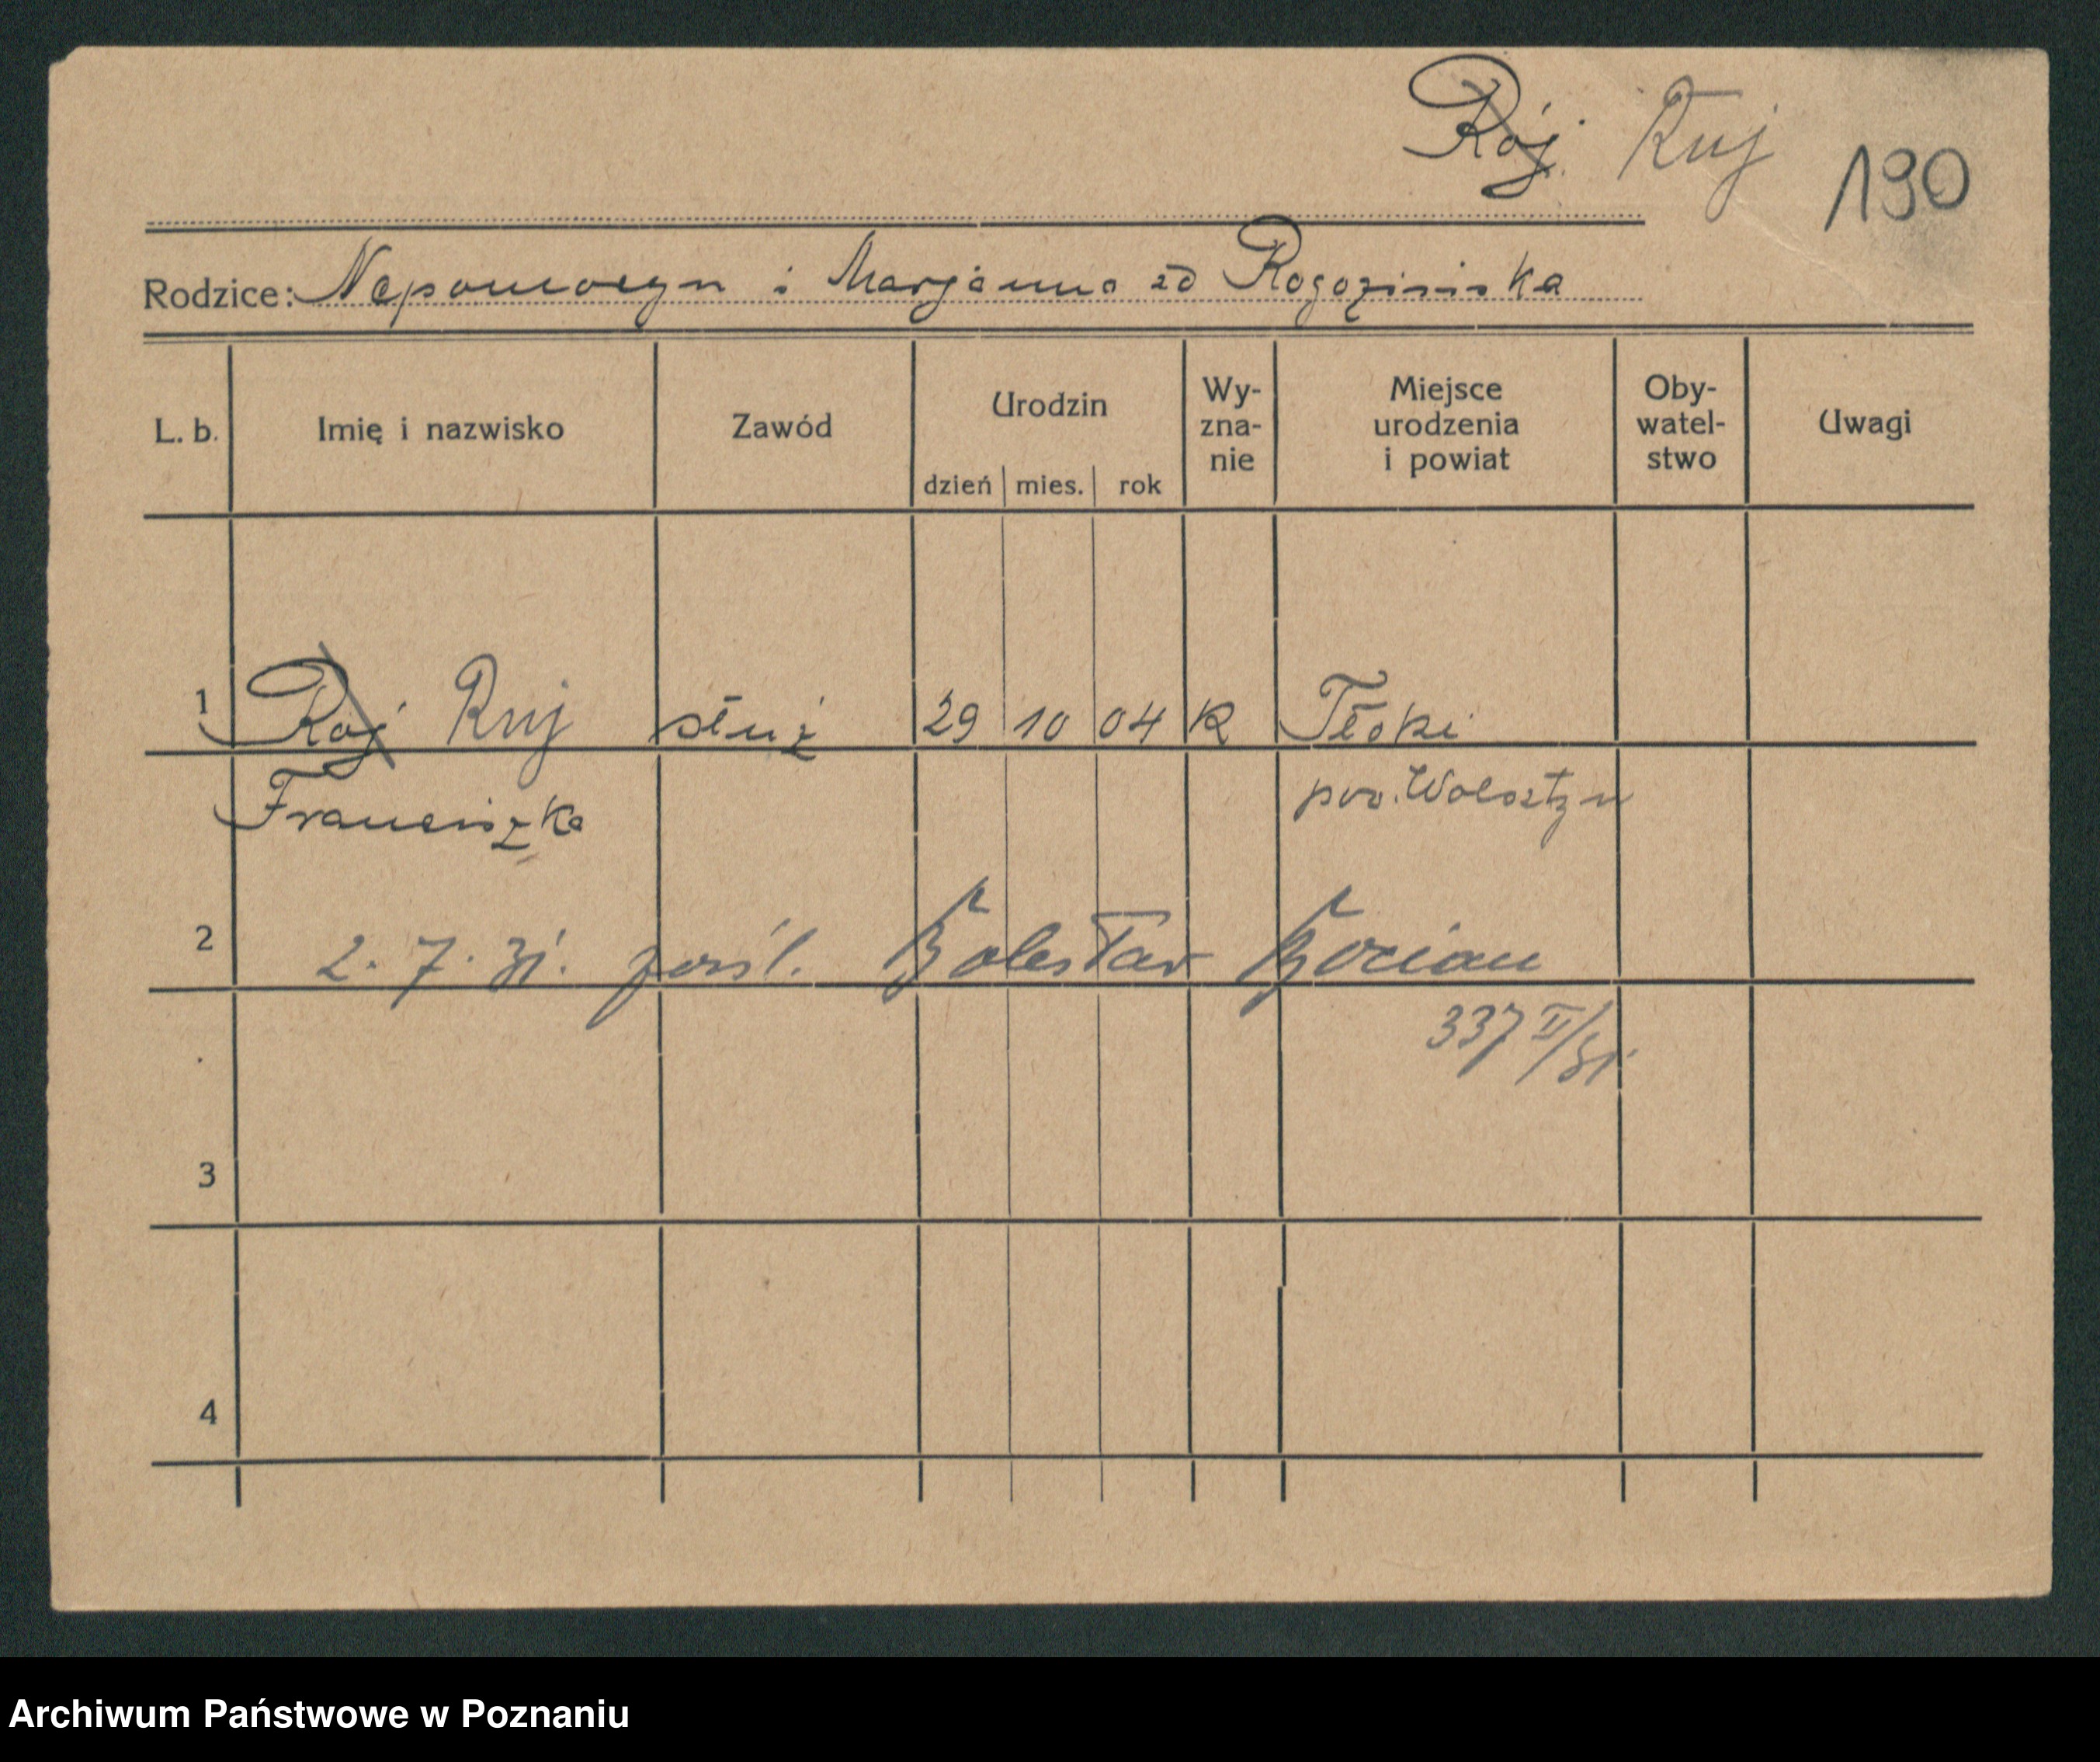 Rój Ruj 190
Rodzice: Nepomocyn i Marjanna zd Rogozinska
L. b. Imię i nazwisko Zawód Urodzin dzień mies. rok Wy-zna-nie Miejsce urodzenia i powiat Oby-watel-stwo Uwagi
1 Rój Ruj służ 29 10 04 K Tłoki
Franciszka pow. Wolsztyn
2 2. 7. 31. pośl. Bolesław Bocian
337 II/31.
3
4
Archiwum Państwowe w Poznaniu